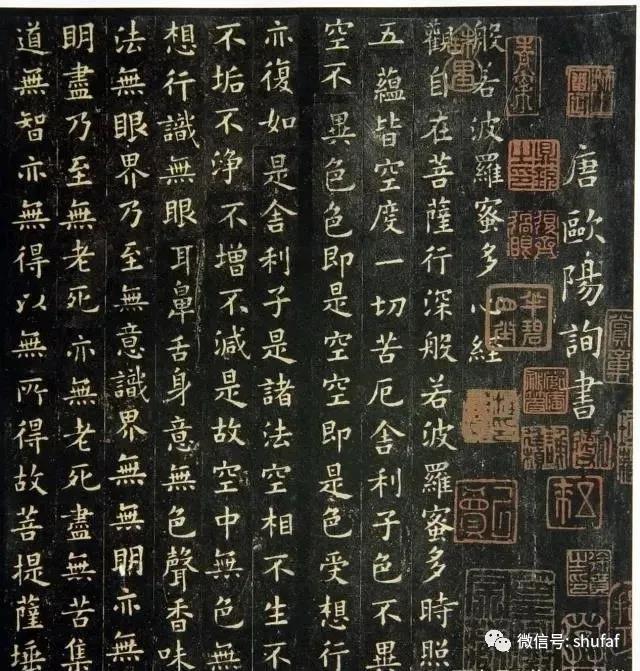 唐歐陽詢書
般若波羅蜜多心經
觀自在菩薩行深般若波羅蜜多時照
五蘊皆空度一切苦厄舍利子色不異
空不異色色即是空空即是色受想行
亦復如是舍利子是諸法空相不生不
不垢不淨不增不減是故空中無色無
想行識無眼耳鼻舌身意無色聲香味
法無眼界乃至無意識界無無明亦無
明盡乃至無老死亦無老死盡無苦集
道無智亦無得以無所得故菩提薩埵
微信号: shufaf